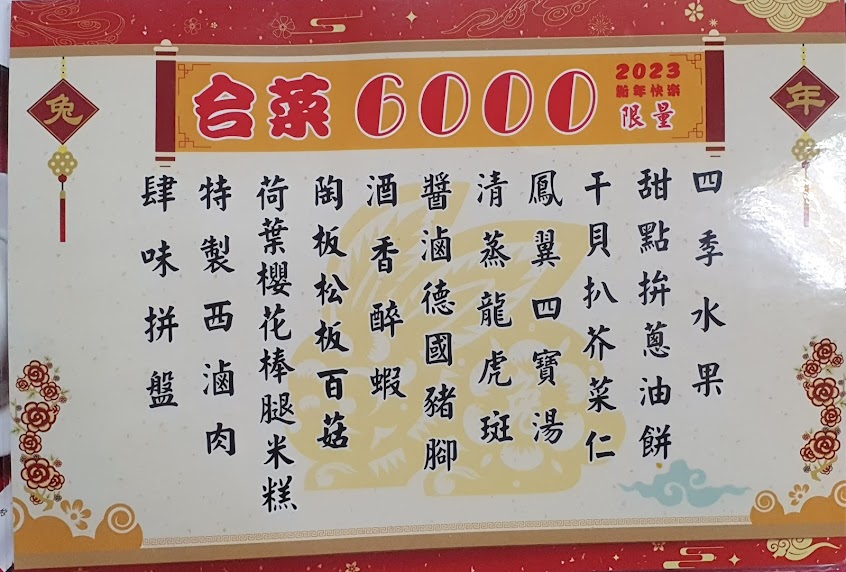 兔
年
台菜 6000
2023
新年快樂
限量
四季水果
甜點拚蔥油餅
干貝扒芥菜仁
鳳翼四寶湯
清蒸龍虎斑
醬滷德國豬腳
酒香醉蝦
陶板松板百菇
荷葉櫻花棒腿米糕
特製西滷肉
肆味拼盤